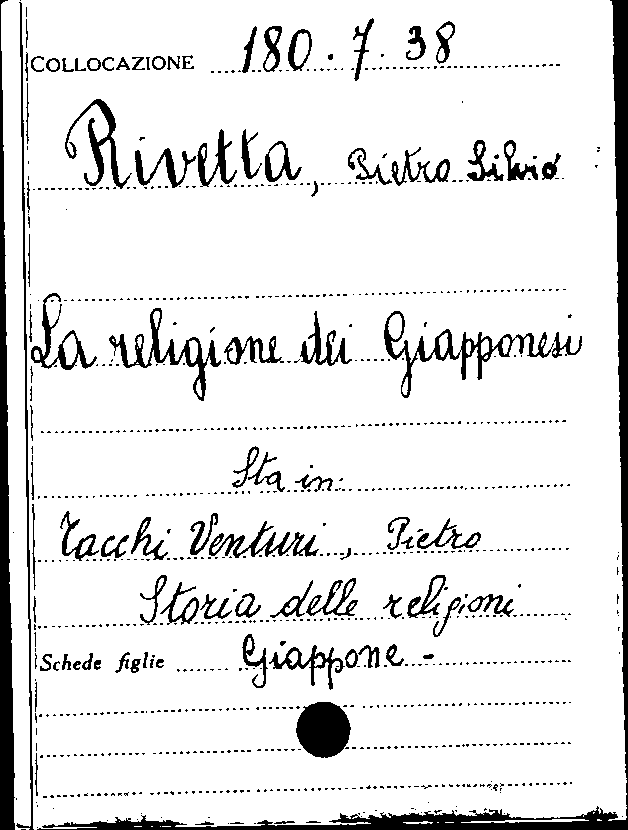 COLLOCAZIONE 180.7.38
Rivetta, Pietro Silvio
La religione dei Giapponesi
Sta in:
Tacchi Venturi, Pietro
Storia delle religioni
Schede figlie Giappone -